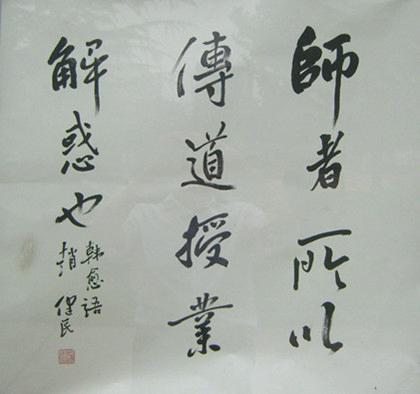 師者所以
傳道授業
解惑也
韓愈語
趙保民